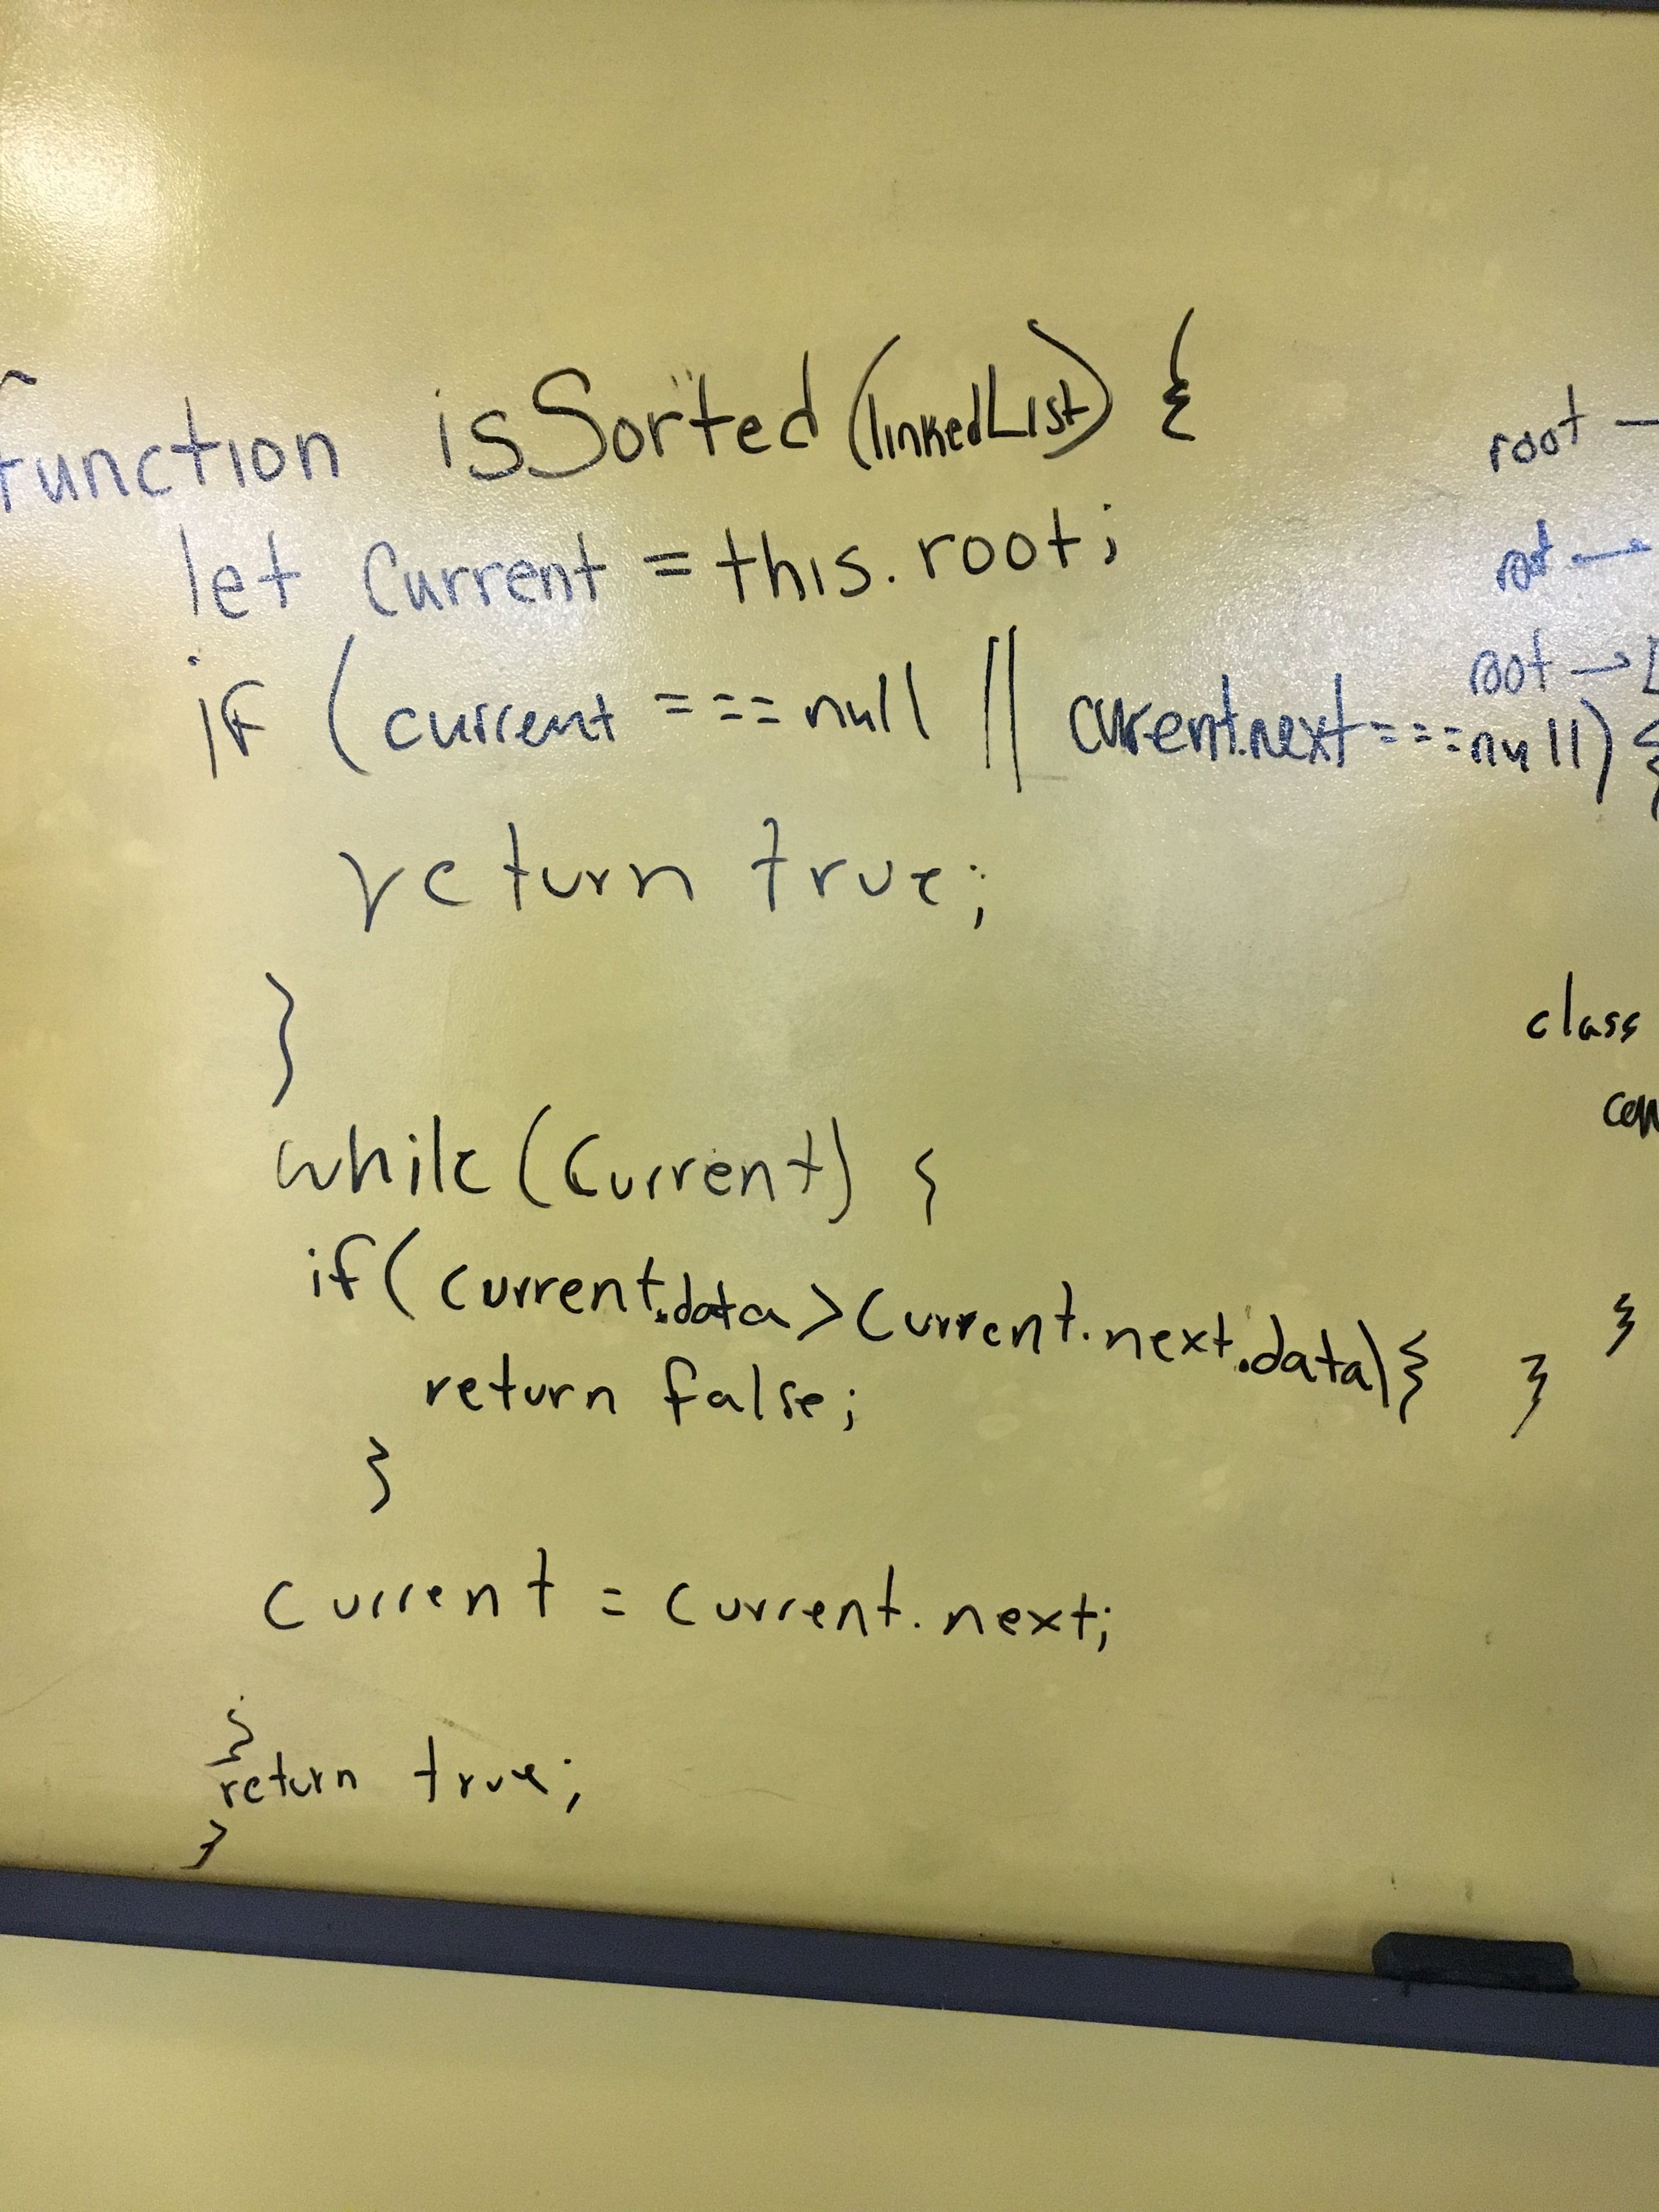 function isSorted (linkedList) {
let current = this.root;
if (current === null || current.next === null) {
return true;
}
while (current) {
if (current.data > current.next.data) {
return false;
}
current = current.next;
}
return true;
}
root →
root →
root →
class
}
}